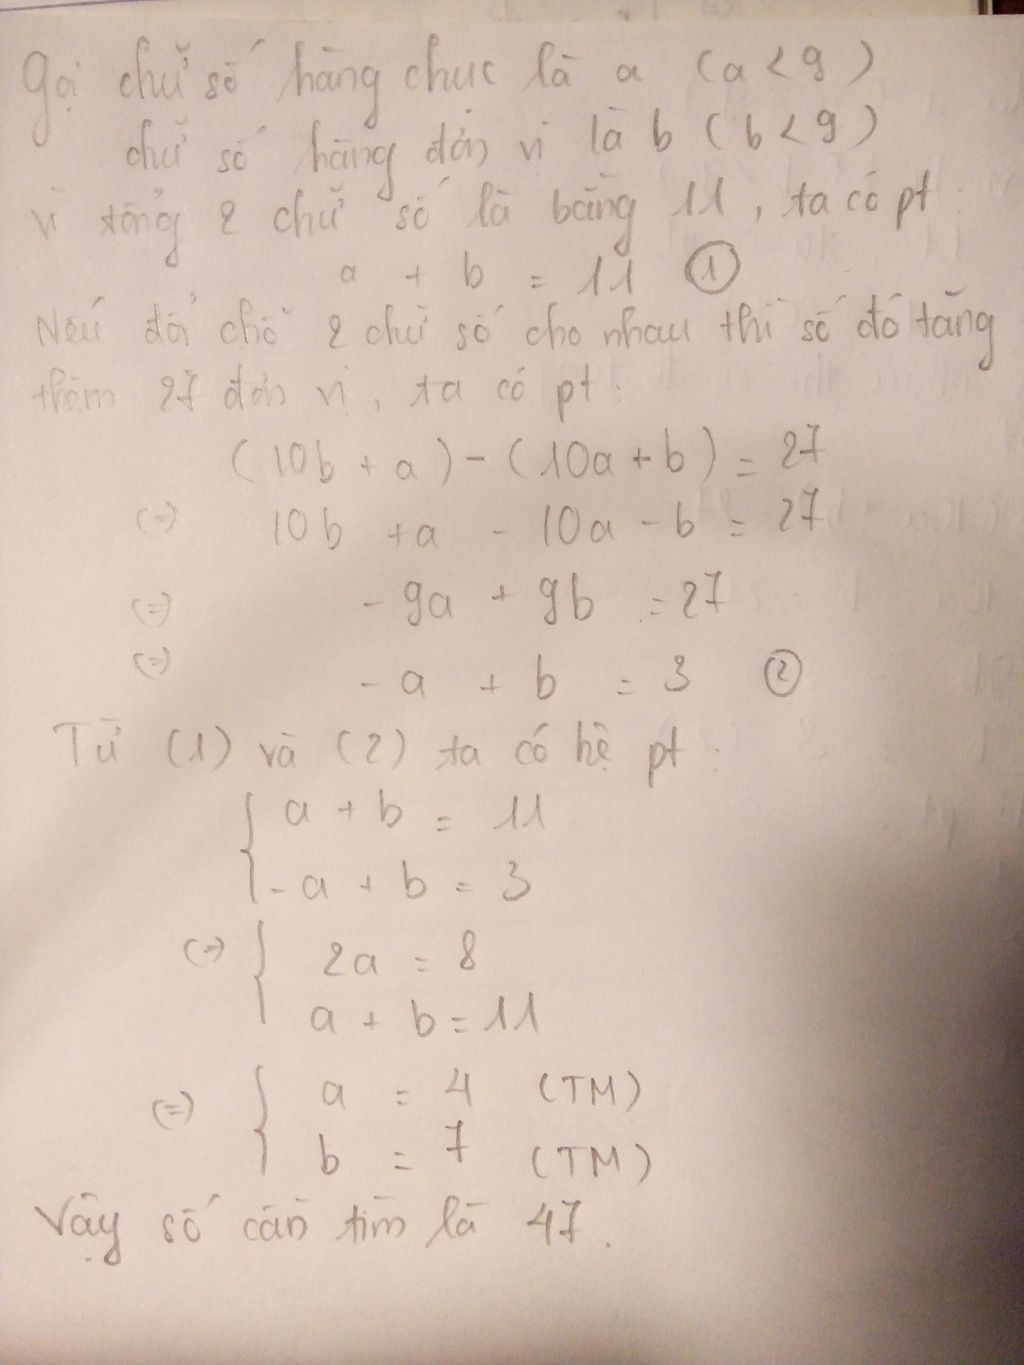 Gọi chữ số hàng chục là a (a < 9)
chữ số hàng đơn vị là b (b < 9)
Vì tổng 2 chữ số là bằng 11, ta có pt:
a + b = 11 ①
Nếu đổi chỗ 2 chữ số cho nhau thì số đó tăng
thêm 27 đơn vị, ta có pt:
(10b + a) - (10a + b) = 27
(=) 10b + a - 10a - b = 27
(=) -9a + 9b = 27
(=) -a + b = 3 ②
Từ (1) và (2) ta có hệ pt:
{ a + b = 11
-a + b = 3
(=) { 2a = 8
a + b = 11
(=) { a = 4 (TM)
b = 7 (TM)
Vậy số cần tìm là 47.